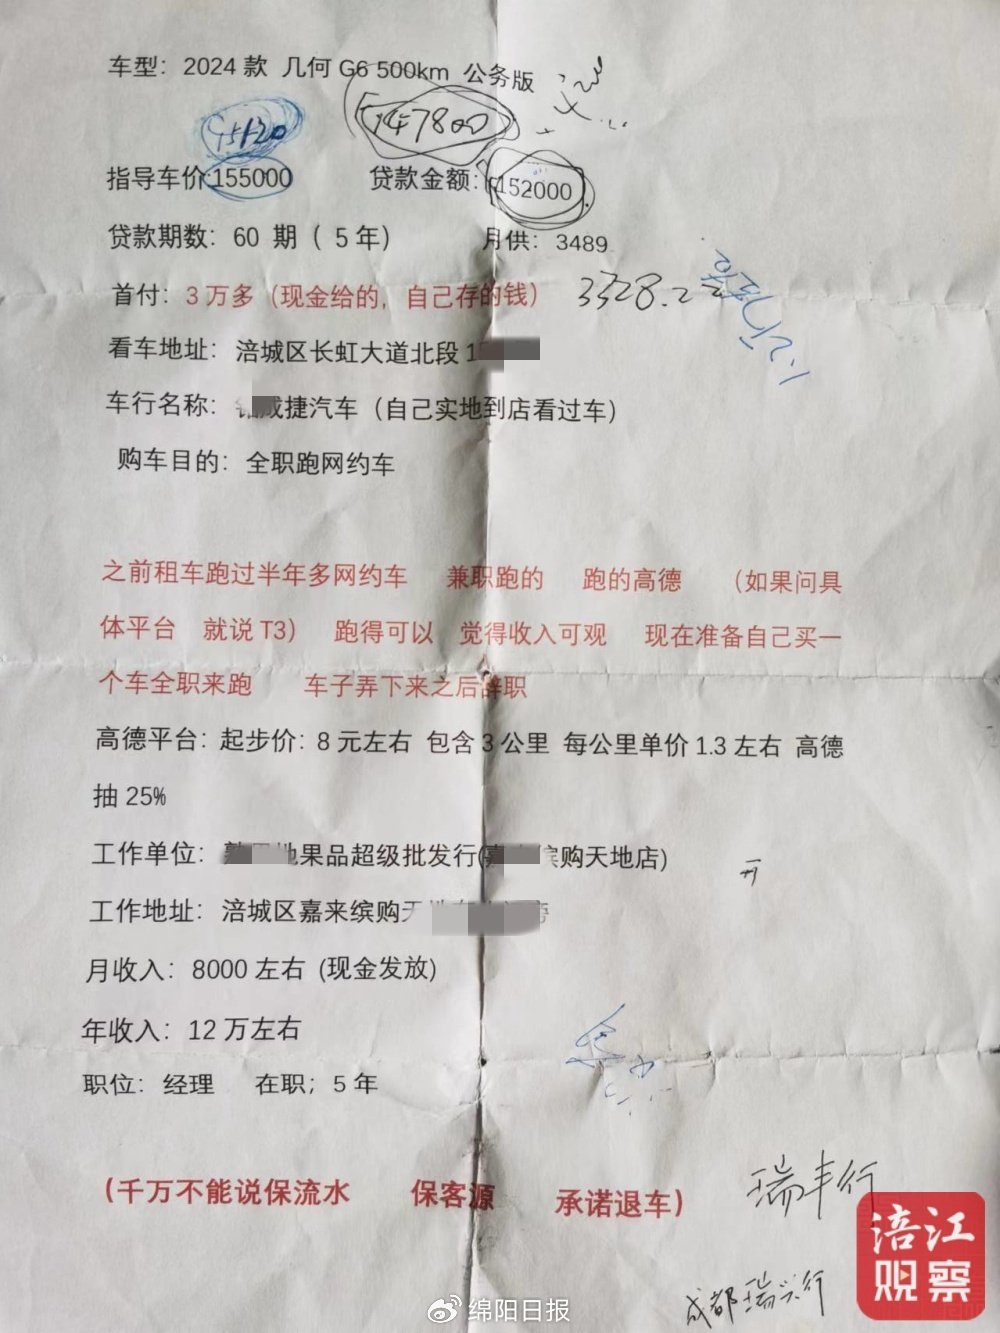 车型：2024 款 几何 G6 500km 公务版
147800
指导车价:155000 贷款金额：152000
贷款期数：60 期（ 5 年） 月供：3489
首付：3 万多（现金给的，自己存的钱） 3328.2
看车地址：涪城区长虹大道北段 1
车行名称： 捷汽车（自己实地到店看过车）
购车目的：全职跑网约车
之前租车跑过半年多网约车 兼职跑的 跑的高德 （如果问具
体平台 就说 T3） 跑得可以 觉得收入可观 现在准备自己买一
个车全职来跑 车子弄下来之后辞职
高德平台：起步价：8 元左右 包含 3 公里 每公里单价 1.3 左右 高德
抽 25%
工作单位： 果品超级批发行( 缤购天地店)
工作地址：涪城区嘉来缤购天
月收入：8000 左右 (现金发放)
年收入：12 万左右
职位：经理 在职；5 年
（千万不能说保流水 保客源 承诺退车）
瑞丰行
成都瑞兴行
涪江
观察
绵阳日报